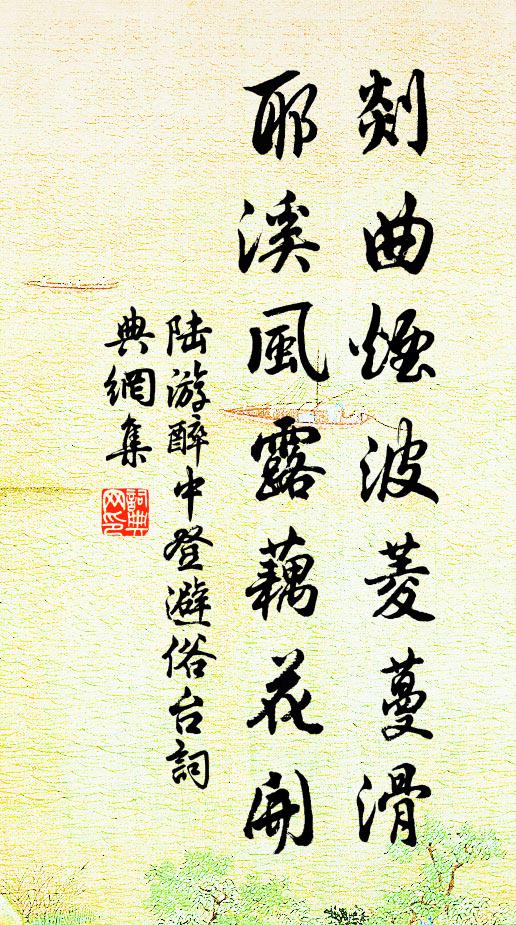 剡曲煙波菱蔓滑
耶溪風露藕花開
陆游醉中登避俗台詞
典網集
詞典
网印